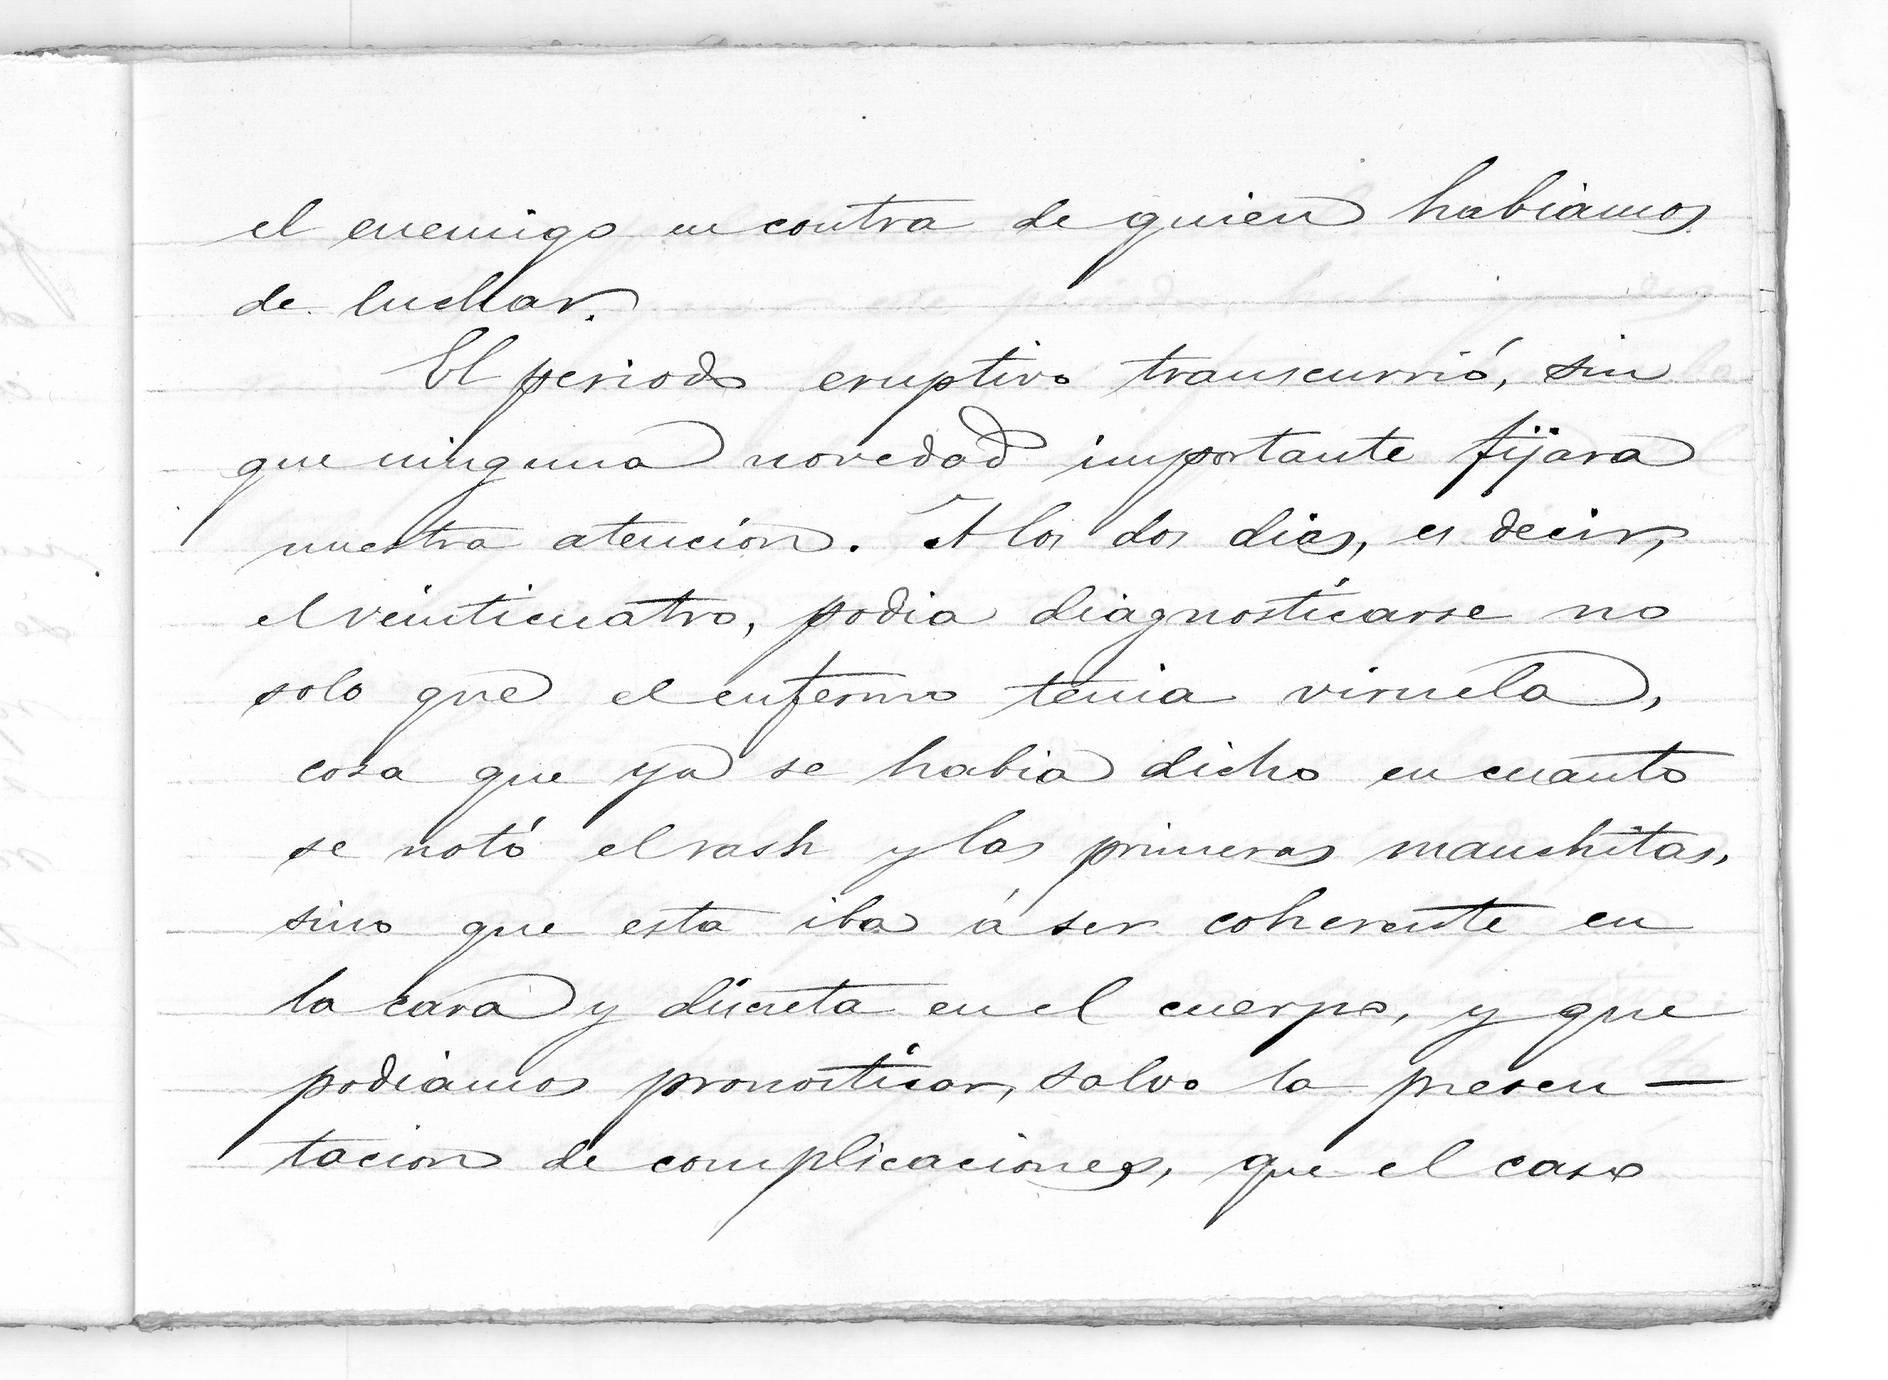 el enemigo en contra de quien habiamos
de luchar.
El periodo eruptivo transcurrió, sin
que ninguna novedad importante fijara
nuestra atención. A los dos dias, es decir,
el veinticuatro, podia diagnosticarse no
solo que el enfermo tenia viruela,
cosa que ya se habia dicho en cuanto
se notó el rash y las primeras manchitas,
sino que esta iba á ser coherente en
la cara y discreta en el cuerpo, y que
podiamos pronosticar, salvo la presen-
tacion de complicaciones, que el caso